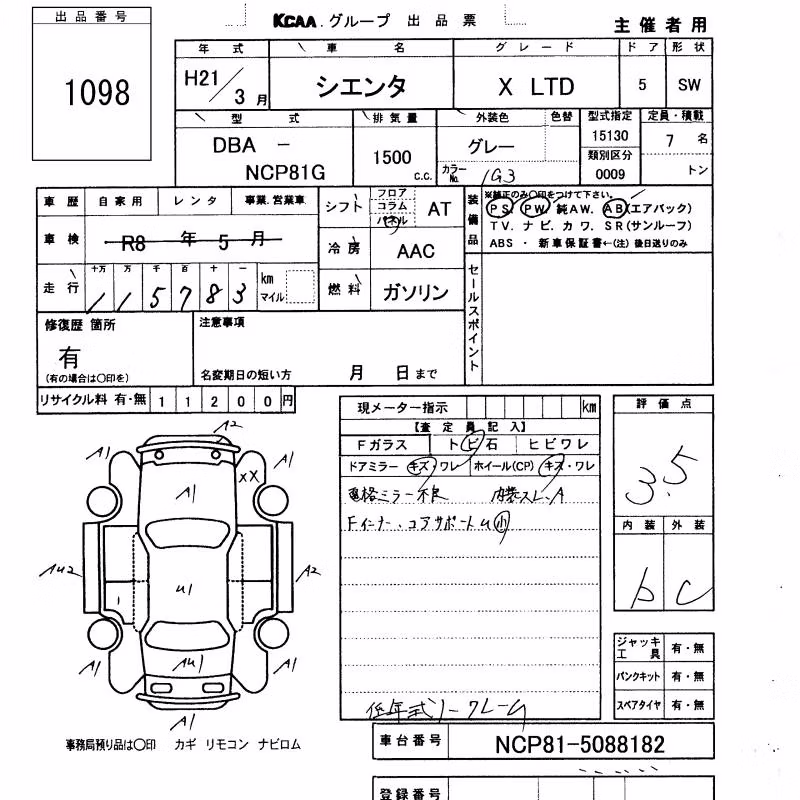 出品番号 KCAA.グループ 出品票 主催者用
1098
年式 車名 グレード ドア 形状
H21/3月 シエンタ X LTD 5 SW
型式 排気量 外装色 色替 型式指定 定員・積載
DBA - 15130 7 名
NCP81G 1500 c.c. グレー 類別区分
カラーNo. 1G3 0009 トン
車歴 自家用 レンタ 事業.営業車
シフト フロア コラム パネル AT
車検 R8 年 5 月
冷房 AAC
走行 十万 万 千 百 十 一
115783 km マイル
燃料 ガソリン
装備品 ※純正のみ〇印をつけて下さい。
PS. PW. 純AW. AB(エアバック)
TV. ナビ. カワ. SR(サンルーフ)
ABS ・ 新車保証書←(注)後日送りのみ
セールスポイント
修復歴 箇所 注意事項
有
(有の場合は〇印を) 名変期日の短い方 月 日まで
リサイクル料 有・無 11200円
現メーター指示 km
【査定員記入】
Fガラス トビ石 ヒビワレ
ドアミラー キズ・ワレ ホイール(CP) キズ・ワレ
電格ミラー不良 内装スレ.A
Fインナー.コアサポートU小
低年式ノークレーム
評価点
3.5
内装 外装
b C
ジャッキ工具 有・無
パンクキット 有・無
スペアタイヤ 有・無
A2
A1 A1
XX
A1
AU2 U1 A2
A1 AU1 A1
A1
事務局預り品は〇印 カギ リモコン ナビロム
車台番号 NCP81-5088182
登録番号